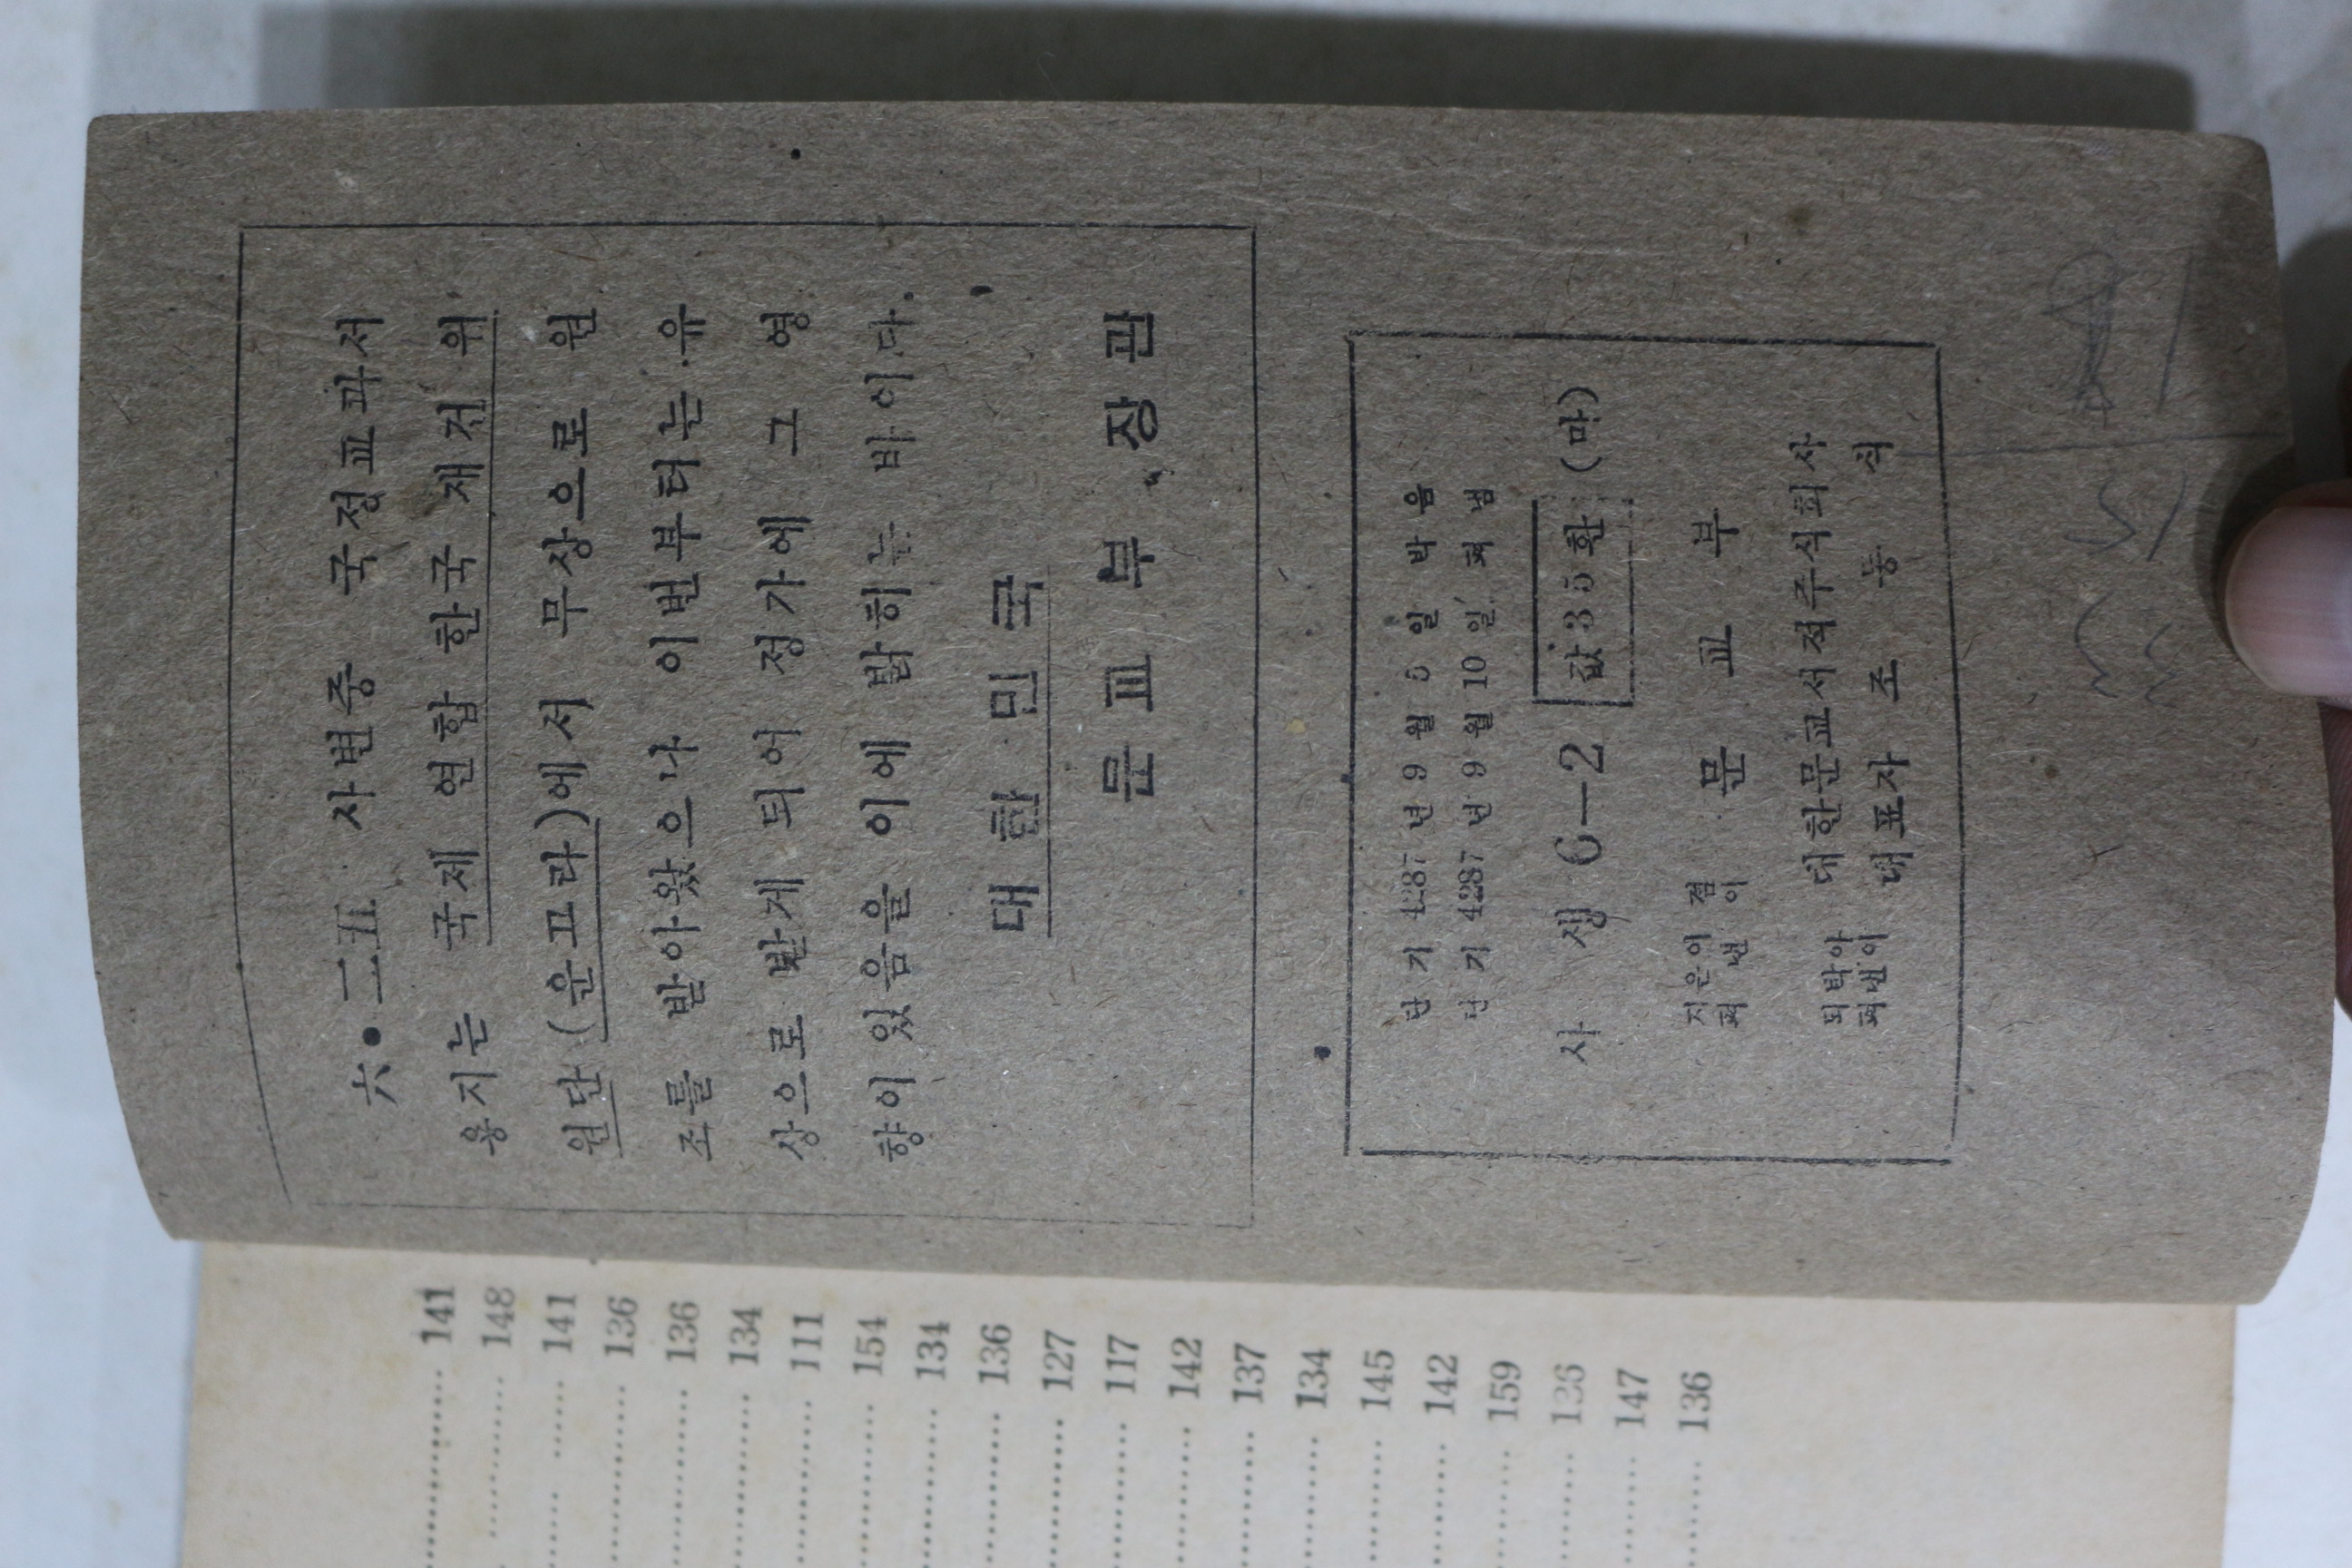 六•二五 사변중 국정교과서
용지는 국제 연합 한국 재건 위
원단(운끄라)에서 무상으로 원
조를 받아왔으나 이번부터는 유
상으로 받게 되어 정가에 그 영
향이 있음을 이에 밝히는 바이다.
대한민국
문교부장관
단기 4287 년 9 월 5 일 박음
단기 4287 년 9 월 10 일 펴냄
사생 6—2 값 35 환 (마)
지은이 겸
펴낸이
문교부
되박아
펴낸이
대한문교서적주식회사
대표자 조동식
141
148
141
136
136
134
111
154
134
136
127
117
142
137
134
145
142
159
136
147
136